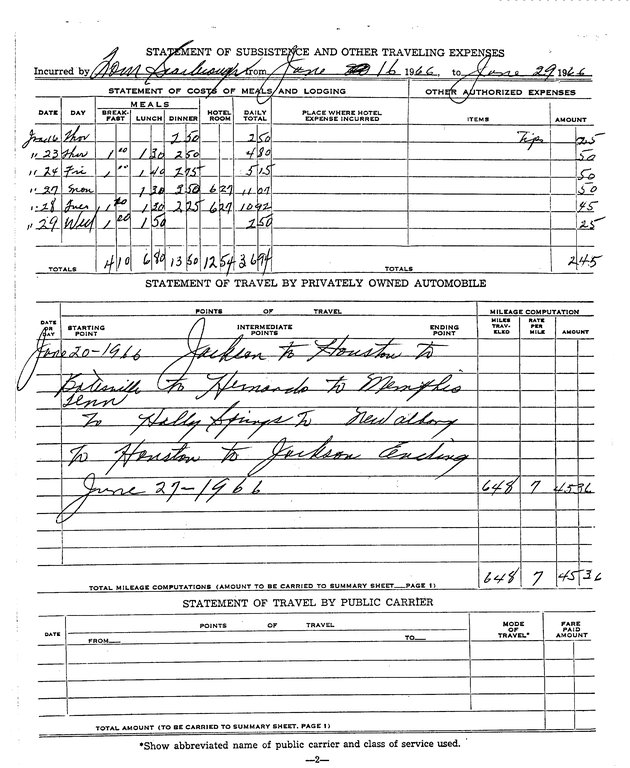 STATEMENT OF SUBSISTENCE AND OTHER TRAVELING EXPENSES
Incurred by Tom Scarbrough from June 16 1966, to June 29 1966
STATEMENT OF COSTS OF MEALS AND LODGING OTHER AUTHORIZED EXPENSES
MEALS
DATE DAY BREAK-FAST LUNCH DINNER HOTEL ROOM DAILY TOTAL PLACE WHERE HOTEL EXPENSE INCURRED ITEMS AMOUNT
June 16 Thur 2 50 2 50 Tips 25
" 23 Thur 1 00 1 30 2 50 4 80 50
" 24 Fri 1 00 1 40 2 75 5 15 50
" 27 Mon 1 30 3 50 6 27 11 07 50
" 28 Tues 1 10 1 30 2 25 6 27 10 92 45
" 29 Wed 1 00 1 50 2 50 25
TOTALS 4 10 6 80 13 50 12 54 36 94 TOTALS 2 45
STATEMENT OF TRAVEL BY PRIVATELY OWNED AUTOMOBILE
POINTS OF TRAVEL MILEAGE COMPUTATION
DATE OR DAY STARTING POINT INTERMEDIATE POINTS ENDING POINT MILES TRAV-ELED RATE PER MILE AMOUNT
June 20-1966 Jackson to Houston to
Batesville to Hernando to Memphis
Tenn
To Holly Springs To New Albany
To Houston to Jackson Ending
June 27-1966 648 7 45 36
TOTAL MILEAGE COMPUTATIONS (AMOUNT TO BE CARRIED TO SUMMARY SHEET—PAGE 1) 648 7 45 36
STATEMENT OF TRAVEL BY PUBLIC CARRIER
POINTS OF TRAVEL
DATE FROM TO MODE OF TRAVEL* FARE PAID AMOUNT
TOTAL AMOUNT (TO BE CARRIED TO SUMMARY SHEET, PAGE 1)
*Show abbreviated name of public carrier and class of service used.
—2—